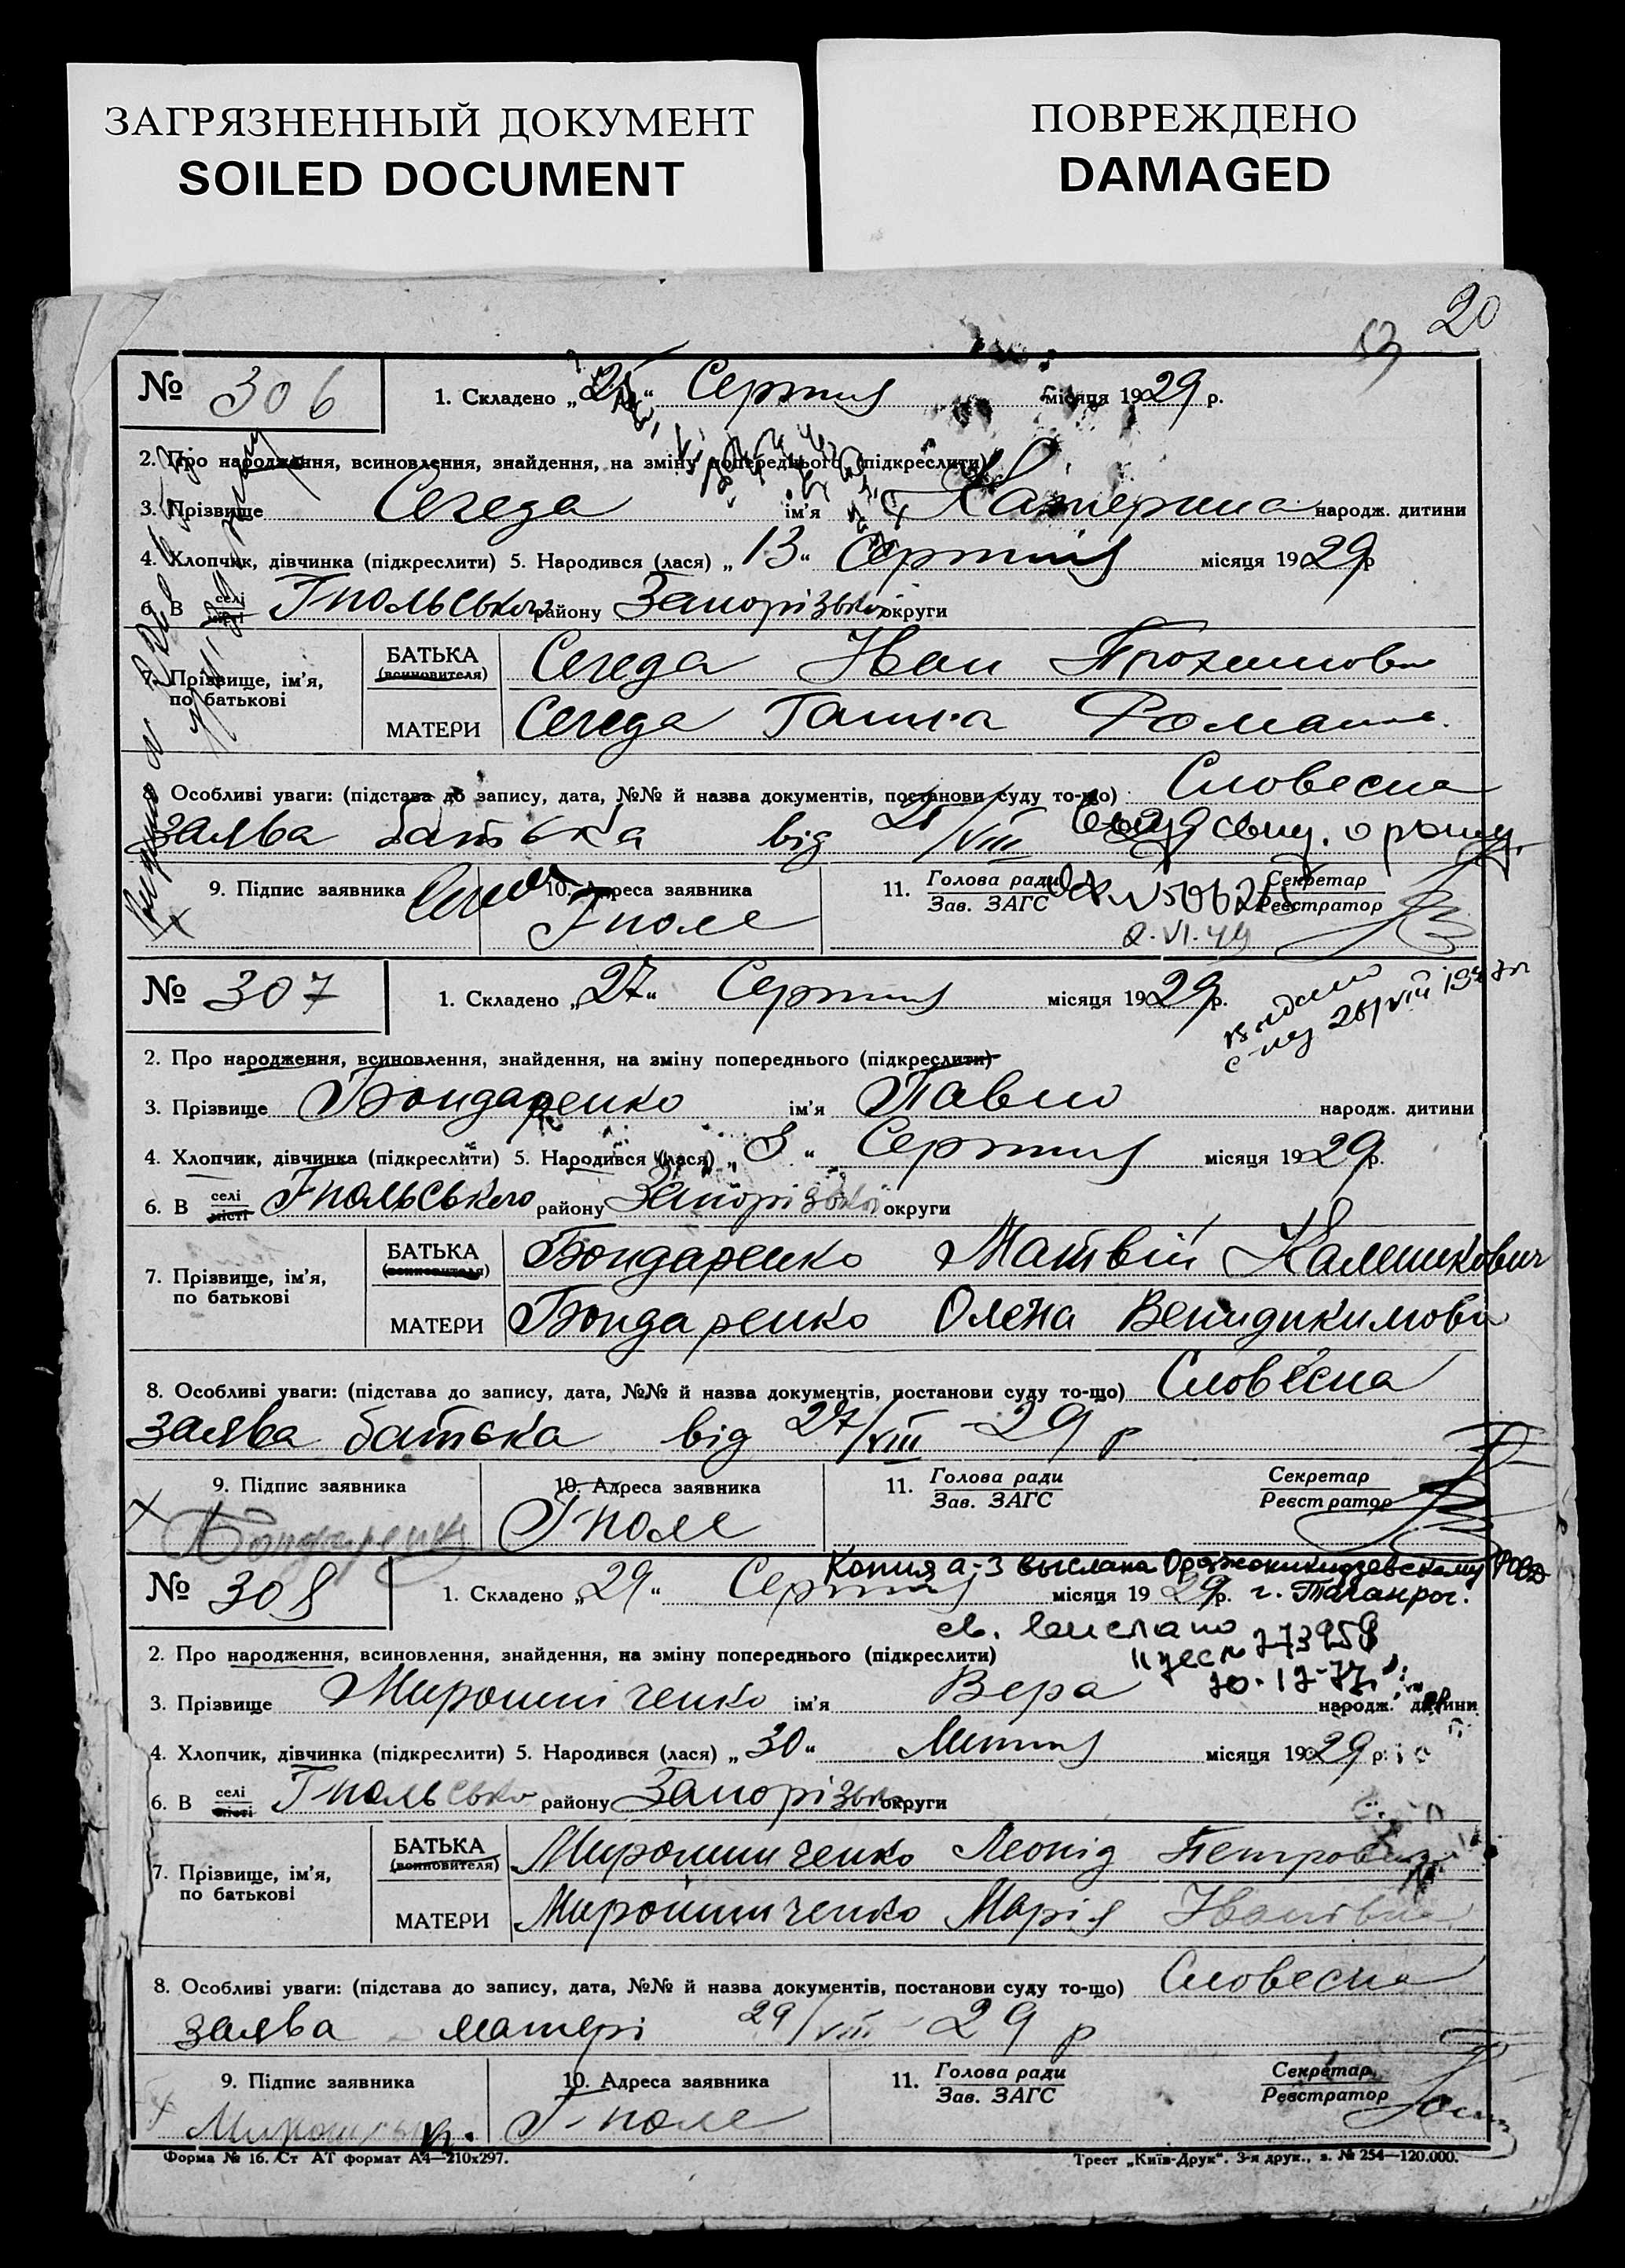 ЗАГРЯЗНЕННЫЙ ДОКУМЕНТ
SOILED DOCUMENT
ПОВРЕЖДЕНО
DAMAGED
20
53
№ 306
1. Складено „25“ Серпня місяця 1929 р.
2. Про народження, всиновлення, знайдення, на зміну попереднього (підкреслити)
3. Прізвище Сегеда ім'я Катерина народж. дитини
4. Хлопчик, дівчинка (підкреслити) 5. Народився (лася) „13“ Серпня місяця 1929р
6. В селі місті Гпольського району Запорізької округи
7. Прізвище, ім'я, по батькові
БАТЬКА (всиновителя) Сегеда Іван
МАТЕРИ Сегеда Ганна Романів.
8. Особливі уваги: (підстава до запису, дата, №№ й назва документів, постанови суду то-що) Словесна
заява батька від /VIII
9. Підпис заявника
10. Адреса заявника Гполе
11. Голова ради Зав. ЗАГС
Секретар Реєстратор
2.VI.49
№ 307
1. Складено „27“ Серпня місяця 1929р.
2. Про народження, всиновлення, знайдення, на зміну попереднього (підкреслити)
3. Прізвище Бондаренко ім'я Павло народж. дитини
4. Хлопчик, дівчинка (підкреслити) 5. Народився (лася) „3“ Серпня місяця 1929р.
6. В селі місті Гпольського району Запорізької округи
7. Прізвище, ім'я, по батькові
БАТЬКА (всиновителя) Бондаренко Матвій
МАТЕРИ Бондаренко Олена
8. Особливі уваги: (підстава до запису, дата, №№ й назва документів, постанови суду то-що) Словесна
заява батька від 27/VIII 29 р
9. Підпис заявника Бондаренко
10. Адреса заявника Гполе
11. Голова ради Зав. ЗАГС
Секретар Реєстратор
Копия а-з выслана Орджоникидзевскому РОВД
г. Таганрог.
№ 308
1. Складено „29“ Серпня місяця 1929р.
2. Про народження, всиновлення, знайдення, на зміну попереднього (підкреслити)
3. Прізвище Мирошніченко ім'я Вера народж. дитини
4. Хлопчик, дівчинка (підкреслити) 5. Народився (лася) „30“ Липня місяця 1929 р.
6. В селі місті Гпольсько району Запорізько округи
7. Прізвище, ім'я, по батькові
БАТЬКА (всиновителя) Мирошниченко Леонід Петрович
МАТЕРИ Мирошниченко Марія Іванівна
8. Особливі уваги: (підстава до запису, дата, №№ й назва документів, постанови суду то-що) Словесна
заява матері 29/VIII 29 р
9. Підпис заявника
10. Адреса заявника Г-поле
11. Голова ради Зав. ЗАГС
Секретар Реєстратор
Форма № 16. Ст АТ формат А4—210х297.
Трест „Київ-Друк“. 3-я друк., з. № 254—120.000.